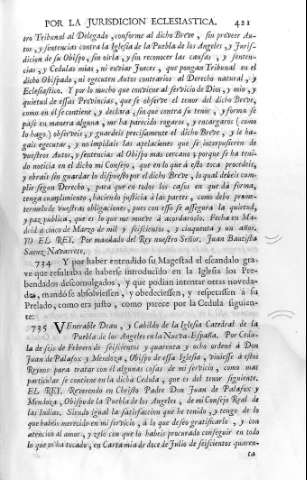 POR LA JURISDICION ECLESIASTICA. 421
tro Tribunal al Delegado, conforme al dicho Breve, sin proveer Au-
tos, y sentencias contra la Iglesia de la Puebla de los Angeles, y Juris-
dicion de su Obispo, sin oirla, y sin reconocer las causas, y senten-
cias, y Cedulas mias, ni enviar Jueces, que pongan Tribunal en el
dicho Obispado, ni executen Autos contrarios al Derecho natural, y
Eclesiastico. Y por lo mucho que conviene al servicio de Dios, y mio, y
quietud de essas Provincias, que se observe el tenor del dicho Breve,
como en él se contiene, y declara, sin que contra su tenor, y forma se
passe en manera alguna, uos ha parecido rogaros, y encargaros (como
lo hago) observeis, y guardeis precisamente el dicho Breve, y le ha-
gais executar, y no impidais las apelaciones que se interpusieren de
vuestros Autos, y sentencias al Obispo mas cercano; porque se ha teni-
do noticia en el dicho mi Consejo, que en lo que à esto toca procedeis,
y obrais sin guardar lo dispuesto por el dicho Breve, lo qual debeis cum-
plir segun Derecho, para que en todos los casos en que dà forma,
tenga cumplimiento, haciendo justicia à las partes, como debe prome-
terme de vuestras obligaciones; pues con esso se assegura la quietud,
y paz publica, que es lo que me mueve à acordaroslo. Fecha en Ma-
drid à cinco de Marzo de mil y seiscientos, y cinquenta y un años.
YO EL REY. Por mandado del Rey nuestro Señor. Juan Bautista
Saenz Navarrete.
734 Y por haber entendido su Magestad el escandalo gra-
ve que resultaba de haberse introducido en la Iglesia los Pre-
bendados descomulgados, y que podian intentar otras noveda-
des, mandó se absolviessen, y obedeciessen, y respetassen à su
Prelado, como era justo, como parece por la Cedula siguien-
te:
735 VEnerable Dean, y Cabildo de la Iglesia Catredal de la
Puebla de los Angeles en la Nueva-España. Por Cedu-
la de seis de Febrero de seiscientos y quarenta y ocho ordené à Don
Juan de Palafox y Mendoza, Obispo de essa Iglesia, viniesse à estos
Reynos para tratar con él algunas cosas de mi servicio, como mas
particular se contiene en la dicha Cedula, que es del tenor siguiente.
EL REY. Reverendo en Christo Padre Don Juan de Palafox y
Mendoza, Obispo de la Puebla de los Angeles, de mi Consejo Real de
las Indias. Siendo igual la satisfaccion que he tenido, y tengo de lo
que habeis merecido en mi servicio, à la que deseo gratificarlo, y con
atencion al amor, y zelo con que lo habeis procurado conseguir en todo
lo que os ha tocado, en Carta mia de doce de Julio de seiscientos quaren-
ta